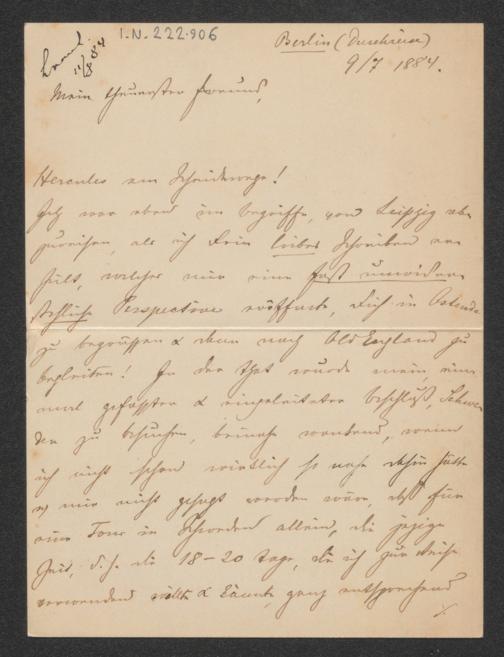 I.N. 222.906
Berlin (Durchreise)
9/7 1884.
11/8 84
Mein theuerster Freund,
Hercules am Scheidewege!
Ich war eben im Begriffe, von Leipzig ab-
zureisen, als ich Dein liebes Schreiben er-
hielt, welches mir eine fast unwider-
stehliche Perspective eröffnete, Dich in Ostende
zu begrüssen & dann nach Old England zu
begleiten! In der That wurde mein, ein-
mal gefasster & eingeleiteter Beschluß, Schwe-
den zu besuchen, beinahe wankend, wenn
ich nicht schon wirklich so nahe dahin hätte
& mir nicht gesagt worden wäre, daß für
eine Tour in Schweden allein, die jetzige
Zeit, d. h. die 18-20 Tage, die ich zur Reise
verwenden wollte & könnte, ganz entsprechend